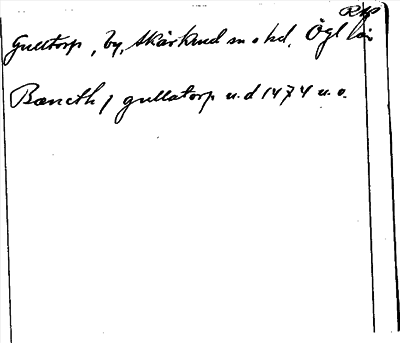 Gulltorp, by, Skärkind sn o hd, Ögl län
Bæncth j gullatorp u. d 1474 u. o.